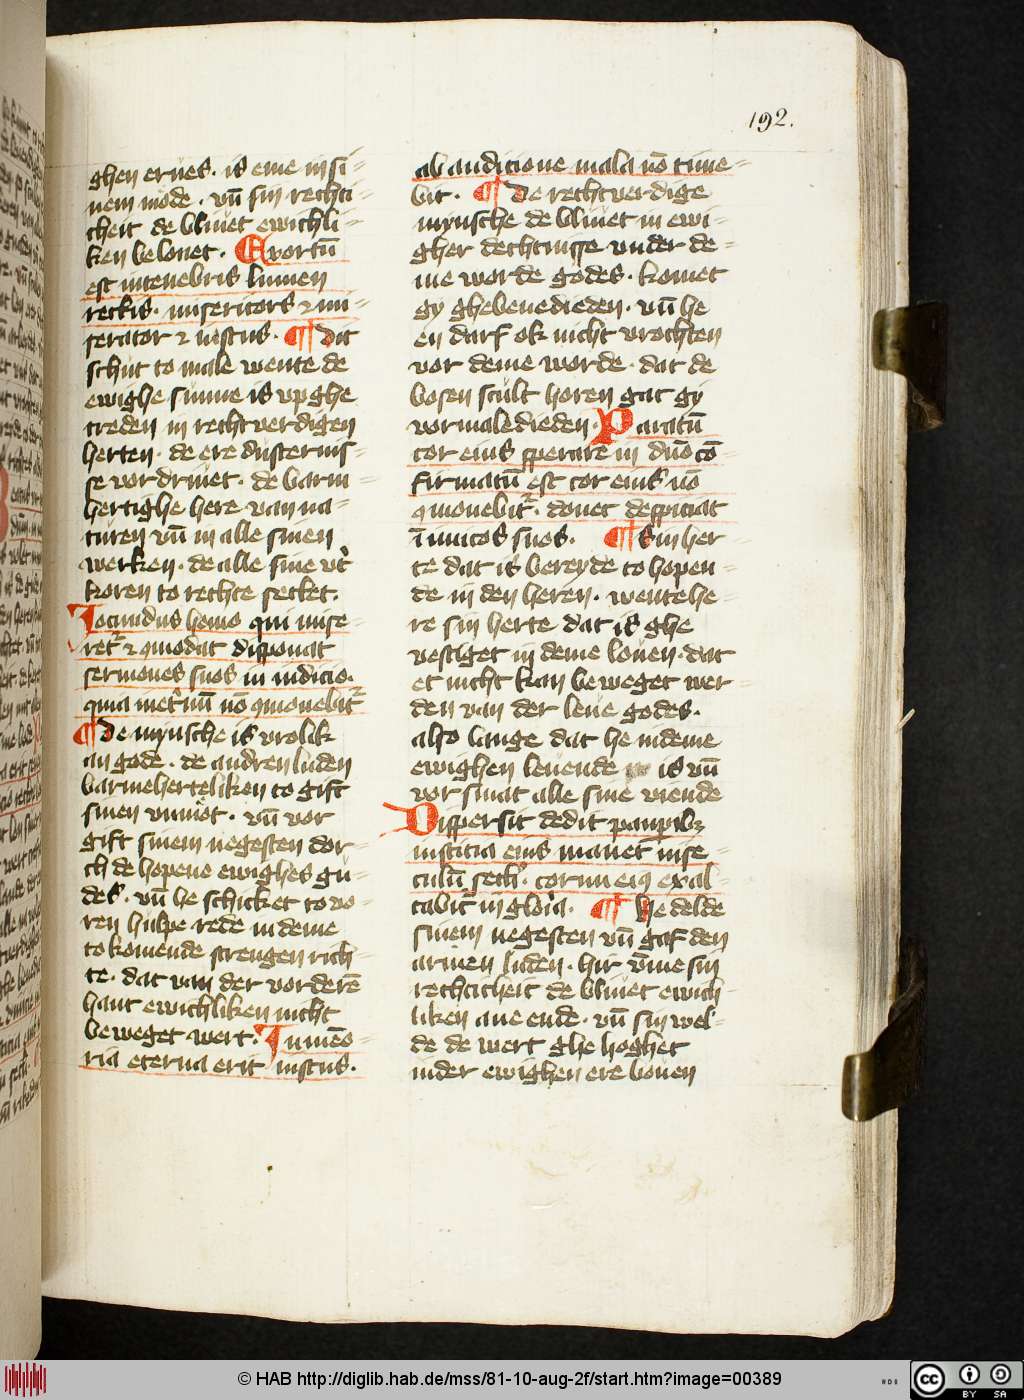 192.
ghen erues · is eme in si-
nem mode · vn̄ sin rechti-
cheit de bliuet ewichli-
ken belonet · Exortū
est intenebris lumen
rectis · misericors ⁊ mi-
serator ⁊ iustus · ¶ dit
schut to male wente de
ewighe sunne is vpghe
treden in rechtverdigen
herten · de ere dusternis-
se vordriuet · de barm-
hertighe here van na-
turen vn̄ in alle sinen
werken · de alle sine vt̾
koren to rechte settet.
Jocundus homo qui mise-
ret᷑ ⁊ ꝯmodat disponat
sermones suos in iudicio.
quia inet̾nū nō ꝯmouebit᷑
¶ De mynsche is vrolik
an gode · de andren luden
barmeherteliken to gift
sinen vnmot · vn̄ vor
gift sinem negesten dor-
ch de hopene ewighes gu-
des · vn̄ he schicket to vo-
ren hulpe rede in deme
to komende strengen rich-
te · dat van der vorderē
hant ewichliken nicht
beweget wert · In mēo-
ria eterna erit iustus ·
ab audicione mala nō time-
bit · ¶ De rechtverdige
mynsche de bliuet in ewi-
gher dechtnisse vnder de-
me worde godes · komet
gy ghebenedieden · vn̄ he
en darf ok nicht vrochten
vor deme worde · dat de
bosen scult horen gat gy
vormaledieden · Paratū
cor eius sperare in dn̄o cō-
firmatū est cor eius nō
ꝯmouebit᷑ · donec despiciat
īimicos suos · ¶ Sin her-
te dat is bereyde to hopen-
de in den heren · wente he-
re sin herte dat is ghe
vestiget in deme louen · dat
et nicht kan beweget wer-
den van der leue godes ·
also lange dat he indeme
ewighen leuende is vn̄
vor smat alle sine viende
Dispersit dedit paupibꝫ
iusticia eius manet inse-
culū secl̾i · cornu eiꝯ exal-
tabit᷑ in glor̾ia · ¶ He delde
sinem negesten vn̄ gaf den
armen luden · hir vm̄e sin
rechticheit de bliuet ewich-
liken ane ende · vn̄ sin wel-
de de wert ghe hoghet
inder ewighen ere bouen
© HAB http://diglib.hab.de/mss/81-10-aug-2f/start.htm?image=00389
cc BY SA